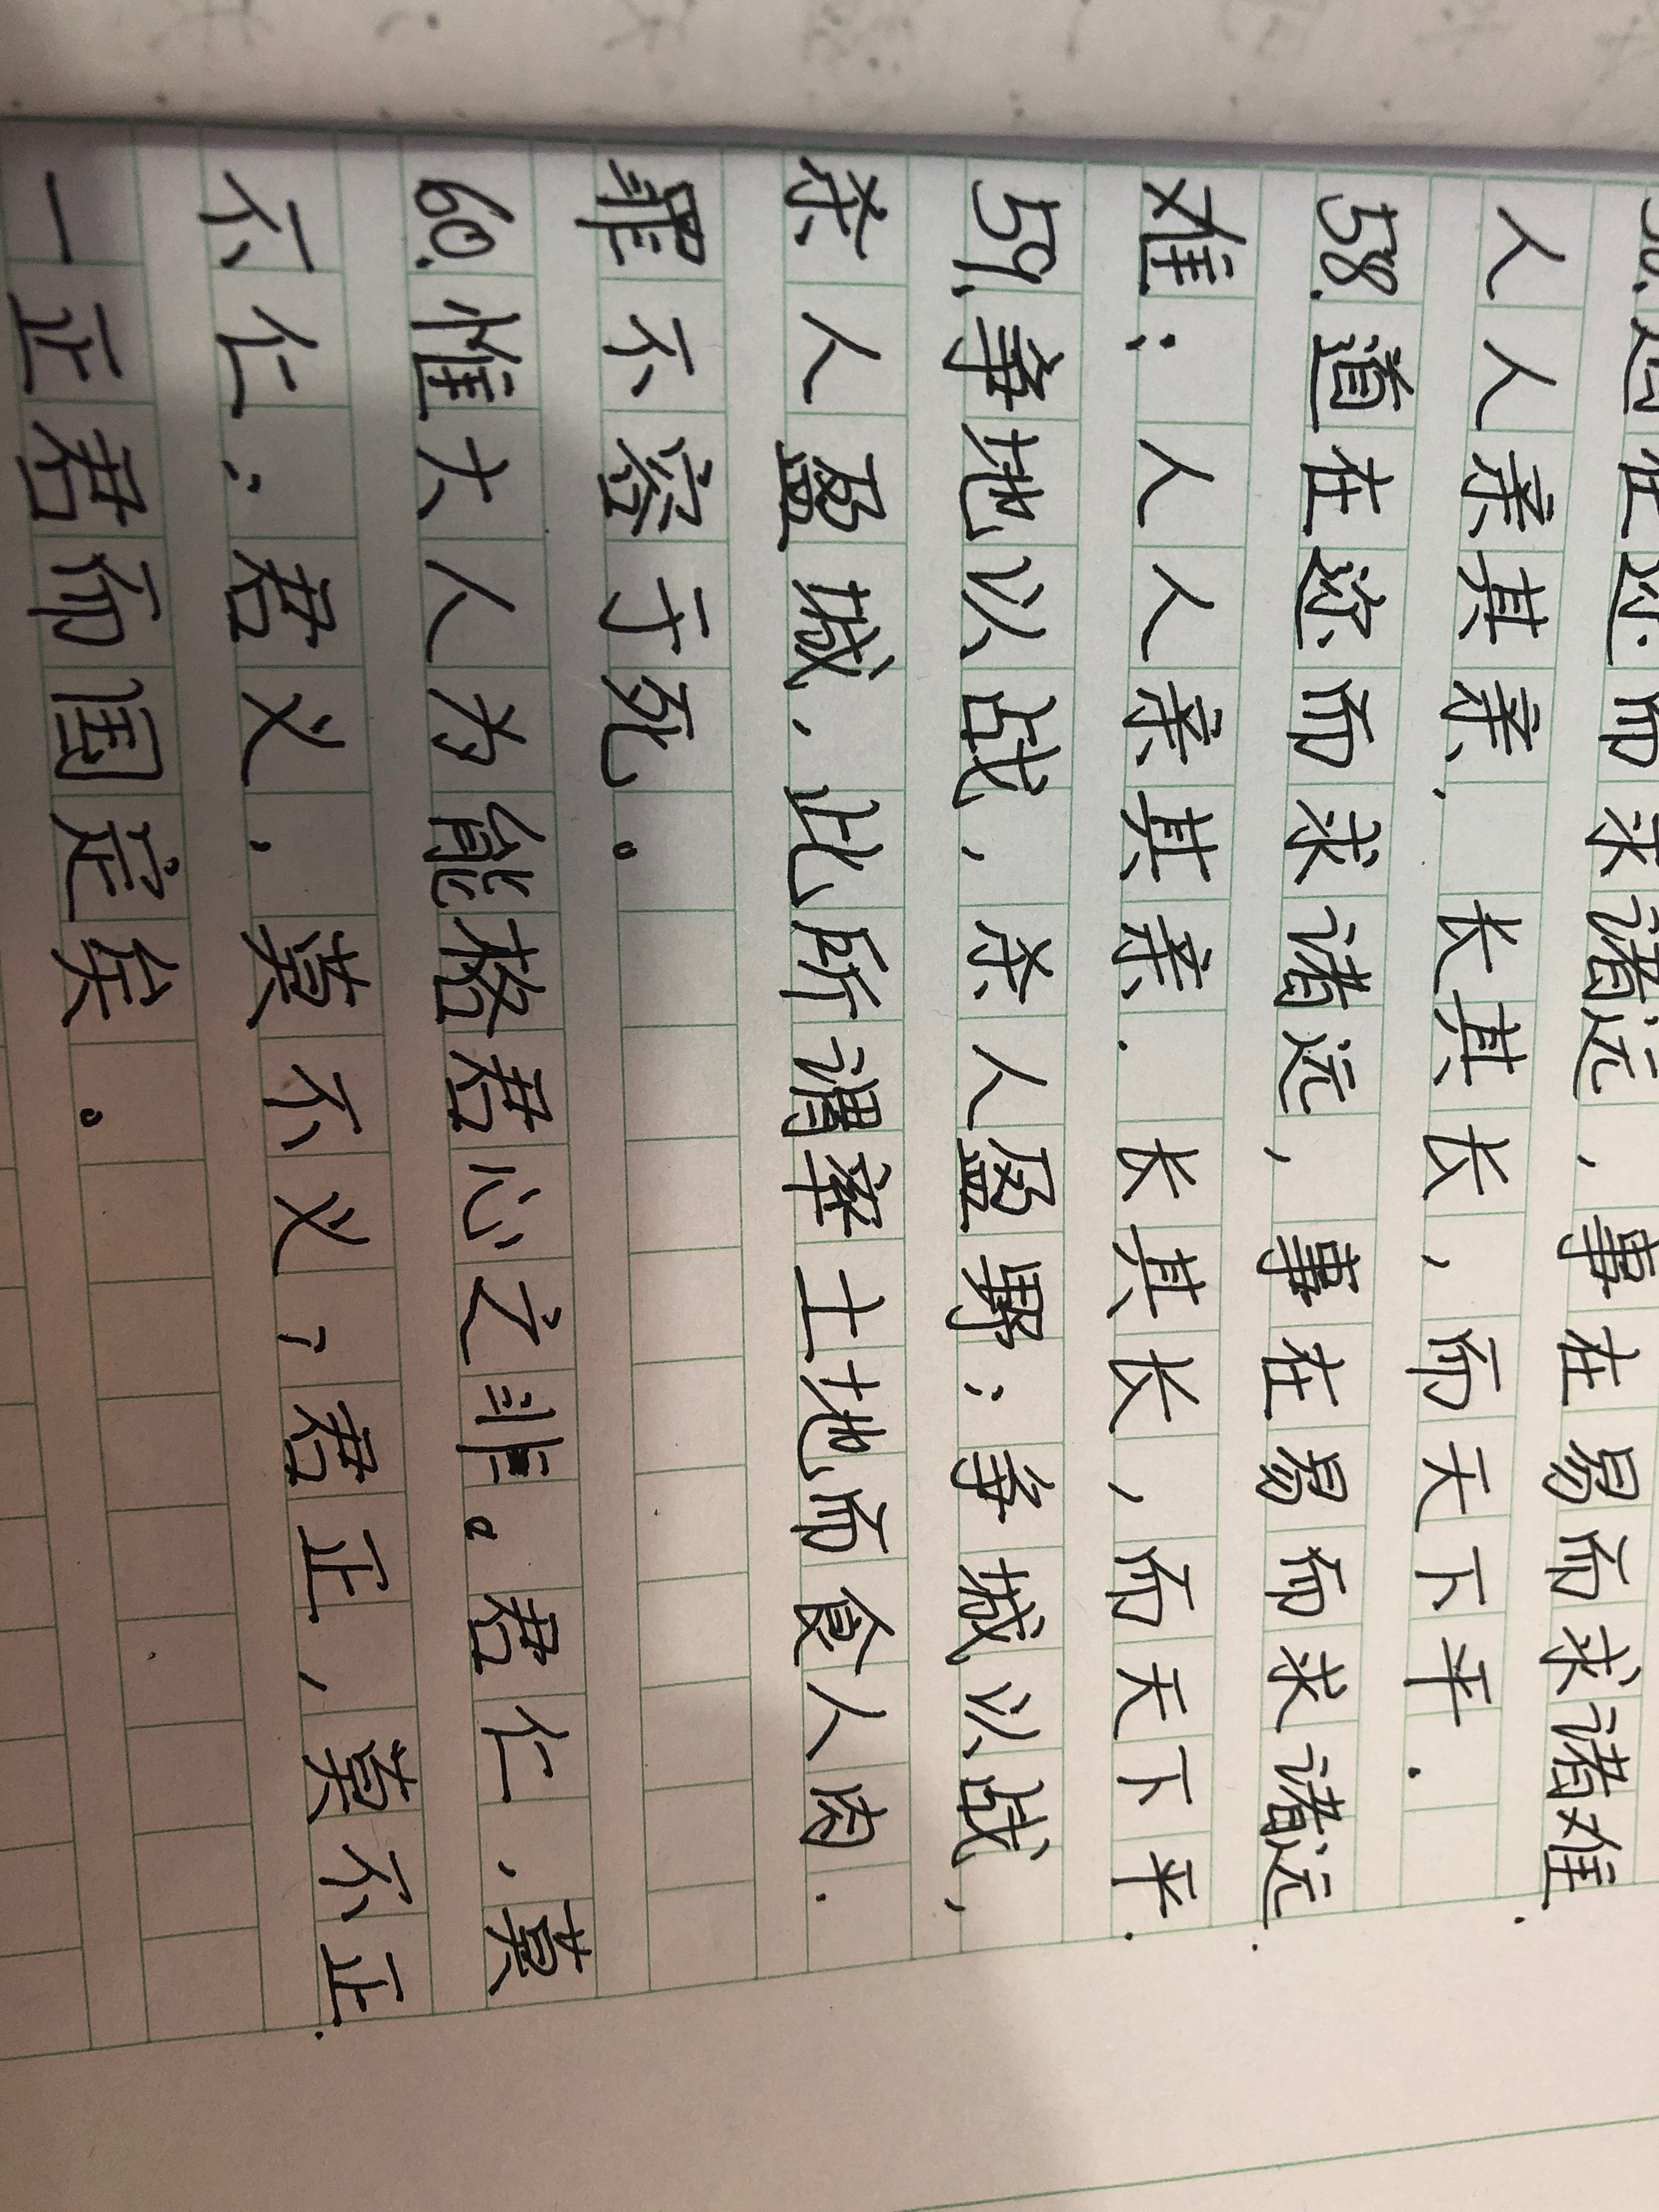 道在迩而求诸远，事在易而求诸难.
人人亲其亲.长其长，而天下平.
58.道在迩而求诸远，事在易而求诸远.
难：人人亲其亲.长其长，而天下平.
59.争地以战，杀人盈野：争城以战，
杀人盈城，此所谓率土地而食人肉.
罪不容于死。
60.惟大人为能格君心之非。君仁，莫
不仁：君义，莫不义，君正，莫不正.
一正君而国定矣。